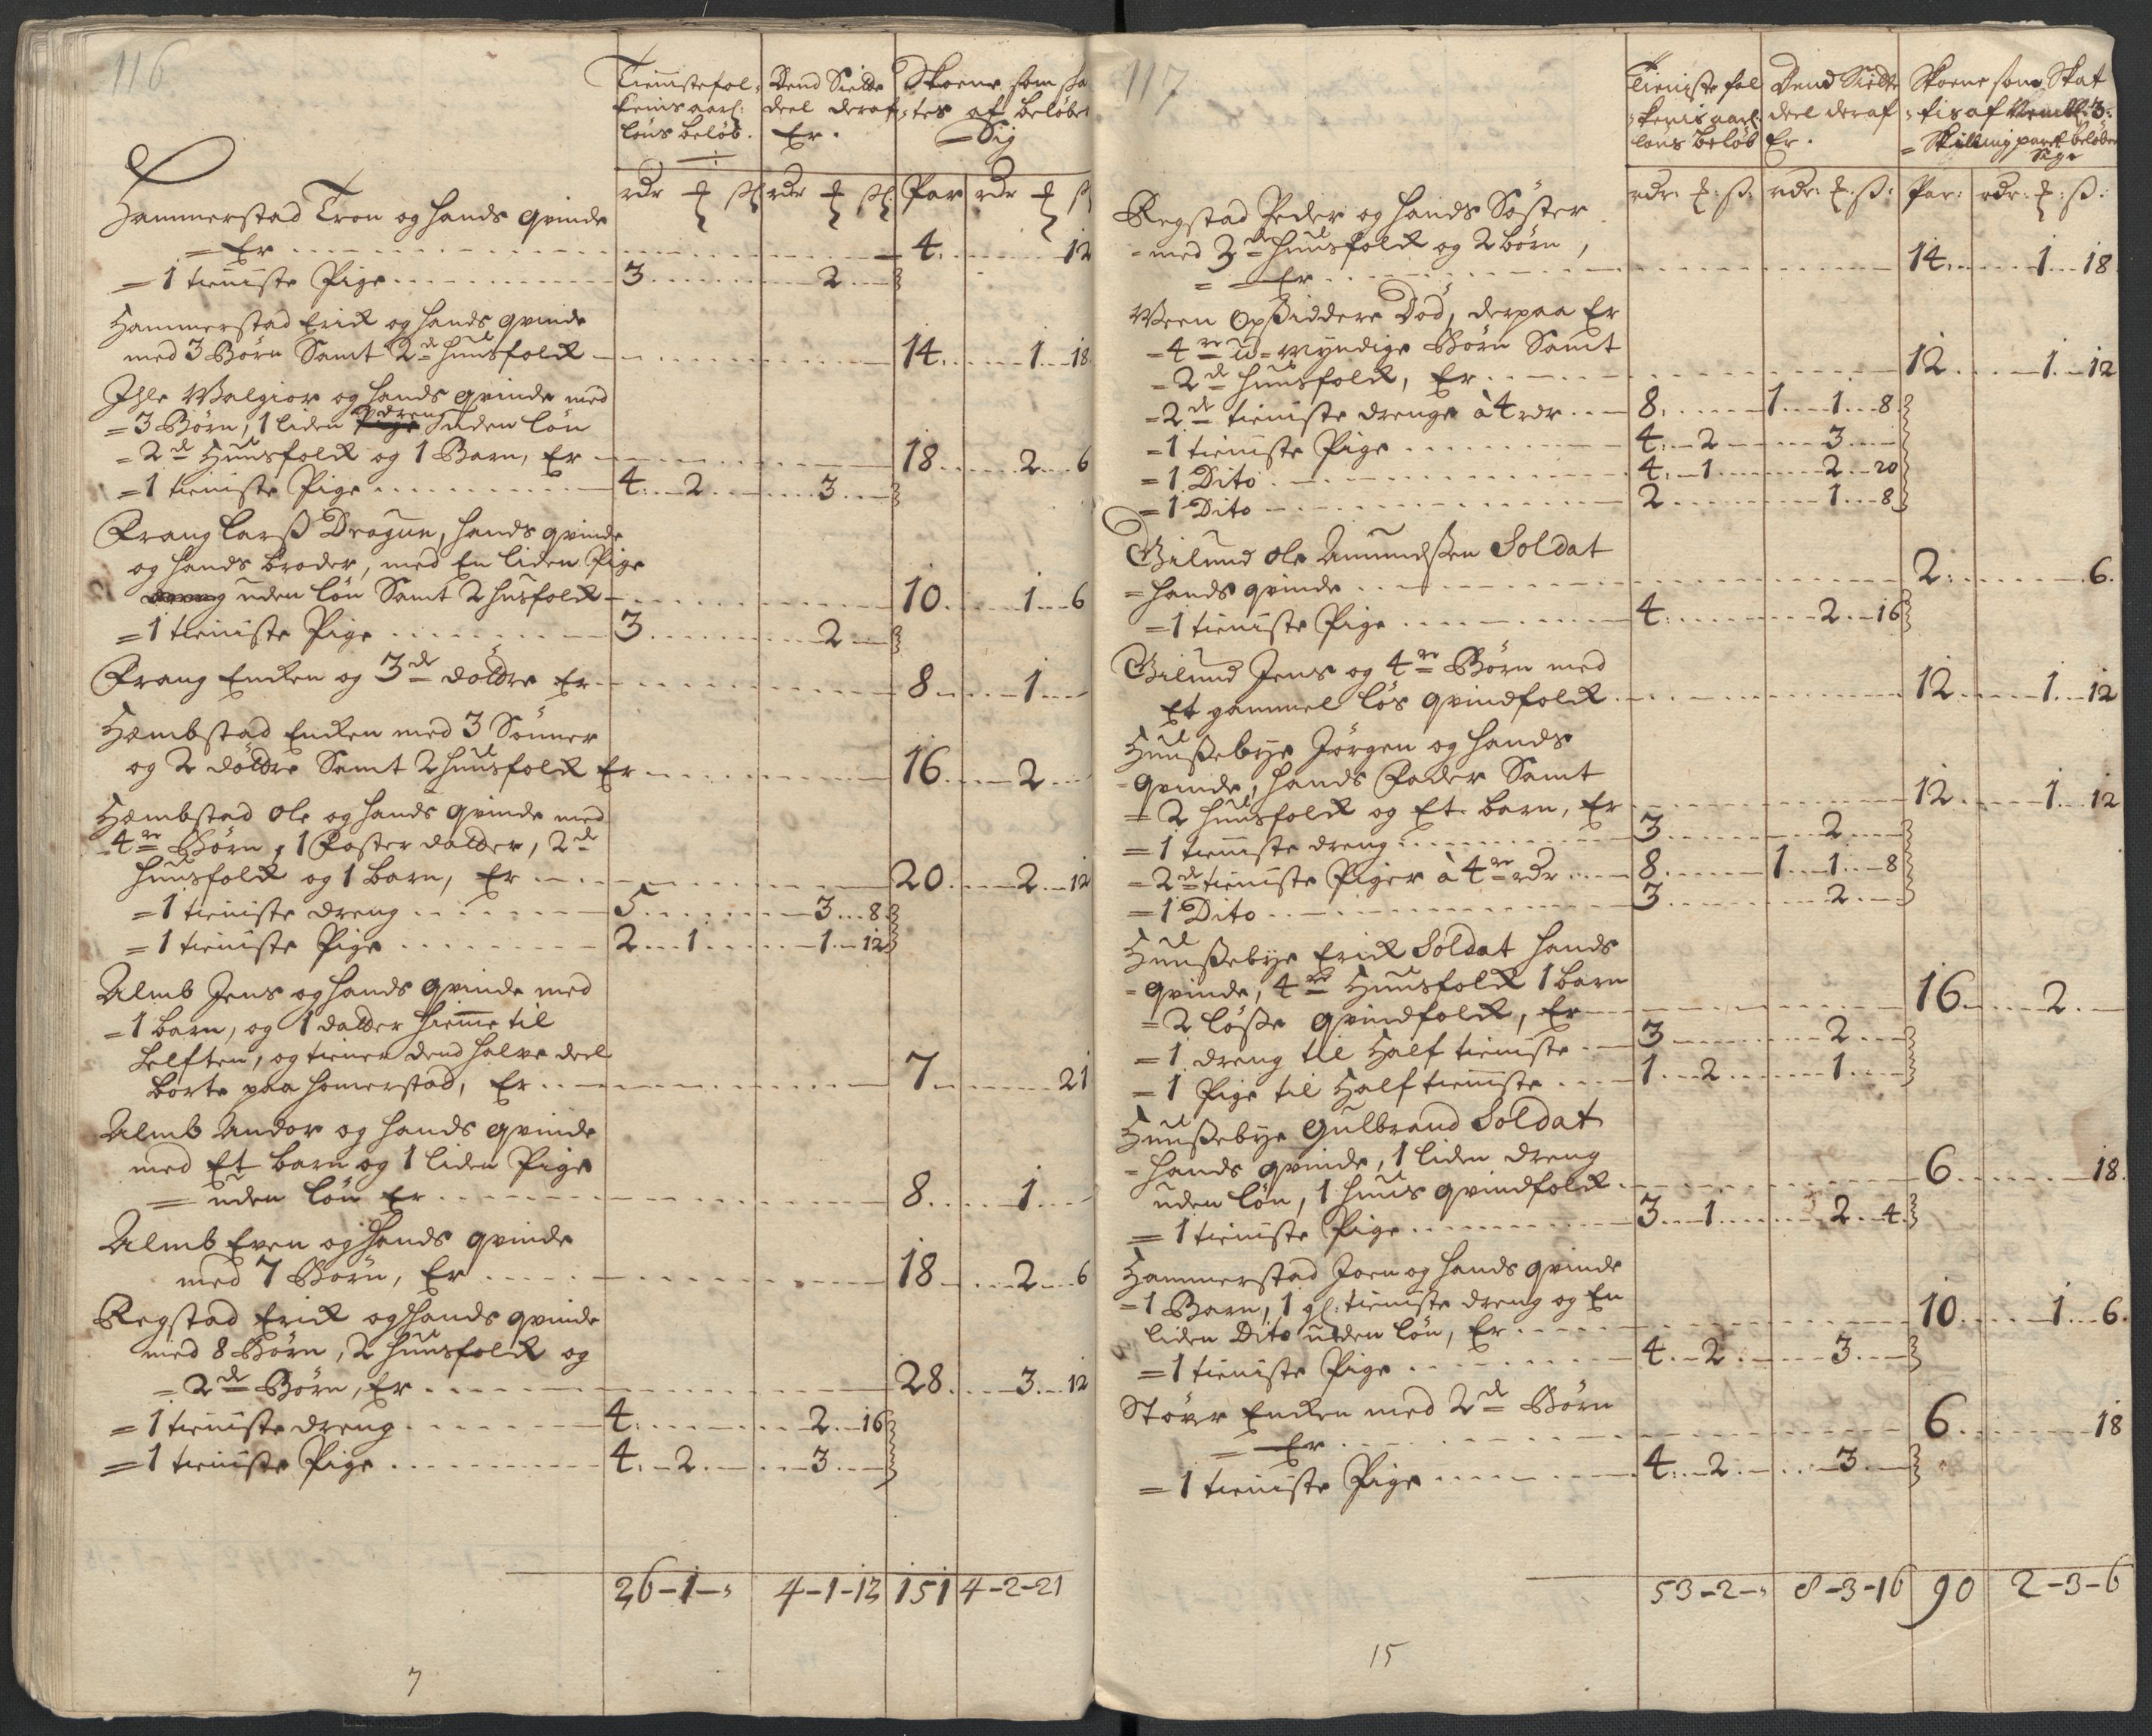 116
Tienistefol= Dend Siette Skoene som ska
kenis aarl: deel deraf =tes af beløber
løns beløb. Er. =Sig
rdr ort sk rdr ort sk Par rdr ort s
Hammerstad Tron og hands qvinde
= Er 4 12
= 1 tieniste Pige 3 2
Hammerstad Erick og hands qvinde
med 3 Børn Samt 2de huusfolck 14 1 18
Ihle Walgior og hands qvinde med
= 3 Børn, 1 liden dreng uden løn
= 2de Huusfolck og 1 Barn, Er 18 2 6
= 1 tieniste Pige 4 2 3
Frang Larß Dragun, hands qvinde
og hands broder, med En liden Pige
dreng uden løn Samt 2 husfolck 10 1 6
= 1 tieniste Pige 3 2
Frang Encken og 3de døttre Er 8 1
Hæmbstad Encken med 3 Sønner
og 2 døttre Samt 2 huusfolck Er 16 2
Hæmbstad Ole og hands qvinde med
4re Børn, 1 Foster datter, 2de
huusfolck og 1 barn, Er 20 2 12
= 1 tieniste dreng 5 3 8
= 1 tieniste Pige 2 1 1 12
Almb Jens og hands qvinde med
= 1 barn, og 1 datter hieme til
helften, og tiener dend halve deel
borte paa homerstad, Er 7 21
Almb Andor og hands qvinde
med Et barn og 1 liden Pige
= uden løn Er 8 1
Almb Even og hands qvinde
med 7 Børn, Er 18 2 6
Regstad Erick og hands qvinde
med 8 Børn, 2 huusfolck og
= 2de Børn, Er 28 3 12
= 1 tieniste dreng 4 2 16
= 1 tieniste Pige 4 2 3
26-1-, 4-1-12 151 4-2-21
7
117
Tieniste fol Dend Siette Skoene som Skat
=kenis aarl: deel deraf =tis af 3:
løns beløb Er. = Skilling paret beløber
Sig
rdr: ort: ß: rdr: ort: ß: Par: rdr: ort: ß:
Regstad Peder og hands Søster
= med 3de huusfolck og 2 børn,
= Er 14 1 18
Ween Opsiddere Død, derpaa Er
= 4re u=myndige Børn Samt
= 2de huusfolck, Er 12 1 12
= 2de tieniste drenge à 4 rdr 8 1 1 8
= 1 tieniste Pige 4 2 3
= 1 Dito 4 1 2 20
= 1 Dito 2 1 8
Gilund Ole Amundssen Soldat
= hands qvinde 2 6
= 1 tieniste Pige 4 2 16
Gilund Jens og 4re Børn med
Et gammel løs qvindfolck 12 1 12
Huußebye Jørgen og hands
= qvinde, hands Fader Samt
= 2 huusfolck og Et barn, Er 12 1 12
= 1 tieniste dreng 3 2
= 2de tieniste Piger à 4re rdr 8 1 1 8
= 1 Dito 3 2
Huußebye Erick Soldat hands
= qvinde, 4re Huusfolck 1 barn
= 2 løße qvindfolck, Er 16 2
= 1 dreng til Half tieniste 3 2
= 1 Pige til Half tieniste 1 2 1
Huußebye Gulbrand Soldat
= hands qvinde, 1 liden dreng
uden løn, 1 huus qvindfolck 6 18
= 1 tieniste Pige 3 1 2 4
Hammerstad Joen og hands qvinde
= 1 Barn, 1 gl: tieniste dreng og En
liden Dito uden løn, Er 10 1 6
= 1 tieniste Pige 4 2 3
Støver Encken med 2de Børn
= Er 6 18
= 1 tieniste Pige 4 2 3
53-2-, 8-3-16 90 2-3-6
15